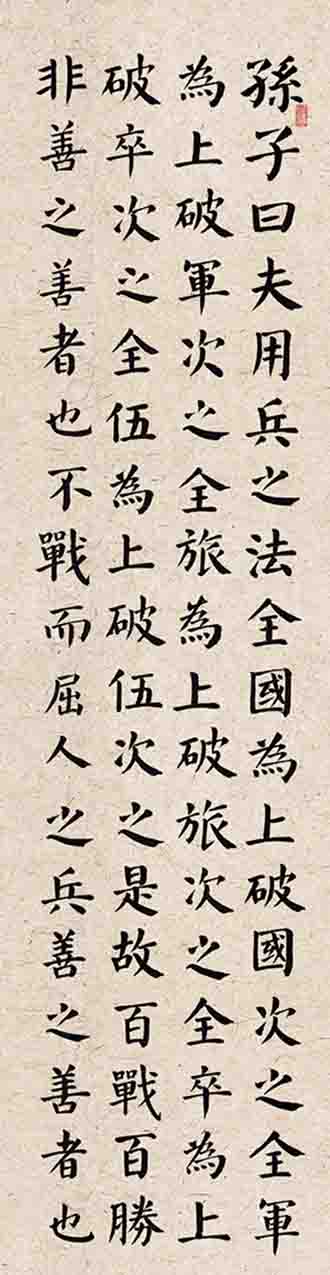 孫子曰夫用兵之法全國為上破國次之全軍
為上破軍次之全旅為上破旅次之全卒為上
破卒次之全伍為上破伍次之是故百戰百勝
非善之善者也不戰而屈人之兵善之善者也